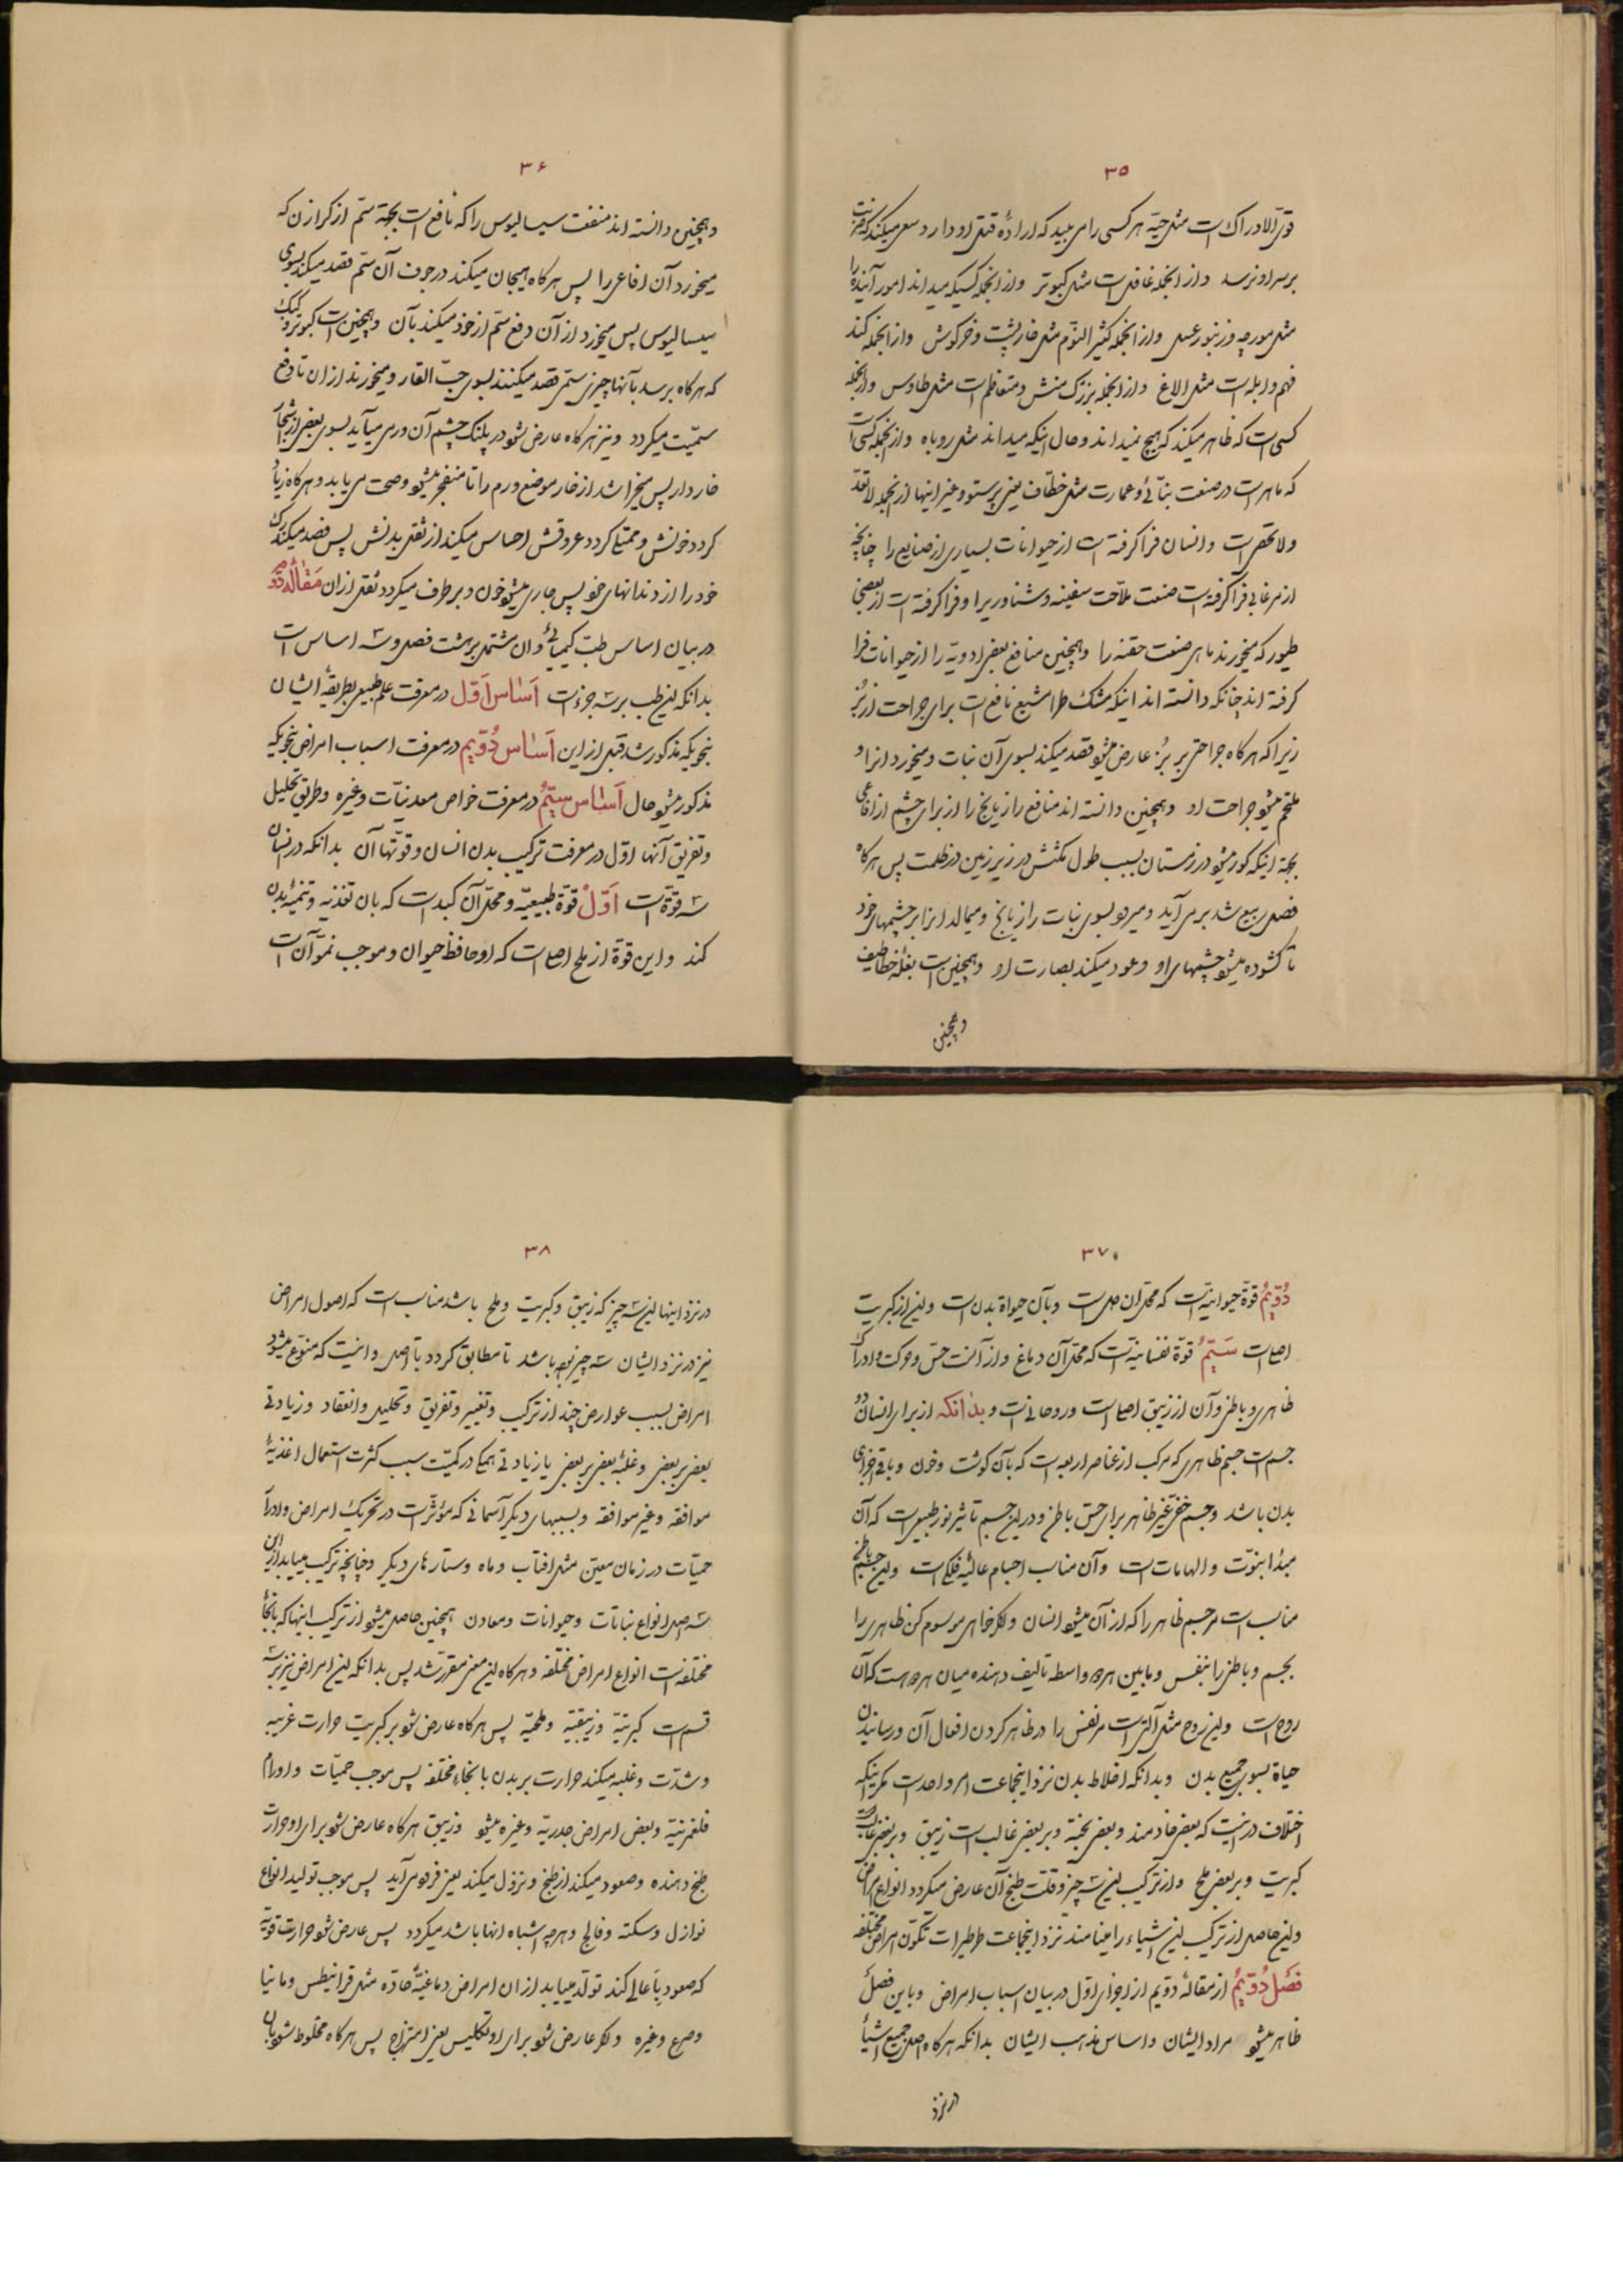 ۳۵
قوی الادراک است مثل حیّه هر کسی را می بیند که ارادهٔ قتل او دارد سعی میکند که ضربت
بر سر او نرسد و از انجمله غافل است مثل کبوتر و از انجمله کسیکه میداند امور آینده را
مثل مورچه و زنبور عسل و از انجمله کثیر النّوم مثل خارپشت و خرگوش و از انجمله کند
فهم و ابله است مثل الاغ و از انجمله بزرگ منش و متعاظم است مثل طاوس و از انجمله
کسی است که ظاهر میکند که هیچ نمیداند و حال اینکه میداند مثل روباه و از انجمله کسی است
که ماهر است در صنعت بنّائی و عمارت مثل خطّاف یعنی پرستو و غیر اینها از انجمله لاتعدّ
ولاتحصی است و انسان فرا گرفته است از حیوانات بسیاری از صنایع را چنانچه
از مرغابی فرا گرفته است صنعت ملاّحت سفینه و شناوری را و فرا گرفته است از بعضی
طیور که میخورند ماهی صنعت حقنه را و همچنین منافع بعضی ادویّه را از حیوانات فرا
گرفته اند چنانکه دانسته اند اینکه مشک طرامشیع نافع است برای جراحت از بُز
زیرا که هرگاه جراحتی بر بُز عارض میشود قصد میکند بسوی آن نبات و میخورد انرا و
ملتحم میشود جراحت او و همچنین دانسته اند منافع رازیانج را از برای چشم از افاعی
بجهة اینکه کور میشود در زمستان بسبب طول مکثش در زیر زمین در ظلمت پس هرگاه
فصل ربیع شد بر می آید و میرود بسوی نبات رازیانج و میمالد انرا بر چشمهای خود
تا گشوده میشود چشمهای او و عود میکند بصارت او و همچنین است بقلهٔ خطاطیف
و همچنین
۳۶
و همچنین دانسته اند منفعت سیسالیوس را که نافع است بجهة سمّ از گرازن که
میخورد آن افاعی را پس هرگاه هیجان میکند در جوف آن سمّ قصد میکند بسوی
سیسالیوس پس میخورد از آن دفع سمّ از خود میکند بآن و همچنین است کبوتر و کبک
که هرگاه برسد بآنها چیزی سمّی قصد میکنند بسوی حبّ الغار و میخورند از ان تا دفع
سمّیّت میگردد و نیز هرگاه عارض شود در پلنک چشم آن ورمی میآید بسوی بعضی از اشجار
خاردار پس میخراشد از خار موضع ورم را تا منفجر میشود و صحت می یابد و هرگاه زیاد
گردد خونش و ممتلی گردد عروقش احساس میکند از ثقل بدنش پس فصد میکند رک
خود را از دندانهای خود پس جاری میشود خون و برطرف میگردد ثقل از ان مقالهٔ دوّیم
در بیان اساس طبّ کیمیائی و ان مشتمل بر هشت فصل و سه اساس است
بدانکه این طب بر سه جزء است اَساس اَوّل در معرفت علم طبیعی بطریقهٔ ایشان
بنحویکه مذکور شد قبل از این اَساس دُوّیم در معرفت اسباب امراض بنحویکه
مذکور میشود حال اَساس سیّمُ در معرفت خواص معدنیّات و غیره و طریق تحلیل
و تفریق آنها اوّل در معرفت ترکیب بدن انسان و قوّتهای آن بدانکه در انسان
سه قوّة است اَوّلْ قوّة طبیعیّه و محلّ آن کبد است که بان تغذیه و تنمیهٔ بدن
کند و این قوّة از ملح اصلی است که او حافظ حیوان و موجب نموّ آن است
۳۷
دُوّیمُ قوّة حیوانیّه است که محلّ ان دل است و بآن حیواة بدن است و این از کبریت
اصلی است سَیّمُ قوّة نفسانیّه است که محلّ آن دماغ و از آنست حسّ و حرکت و ادراک
ظاهری و باطنی و آن از زیبق اصلی است و روحانی است و بدٰانکه از برای انسان دو
جسم است جسم ظاهری که مرکب از عناصر اربعه است که بآن گوشت و خون و باقی اجزای
بدن باشد و جسم خفیّ غیر ظاهر برای حسّ باطن و در این جسم تاثیر نور طبیعی است که آن
مبدٔا نبوّت و الهامات است و آن مناسب اجسام عالیهٔ فلکی است و این جسم باطنی
مناسب است مر جسم ظاهر را که از آن میشود انسان و اگر خواهی موسوم کن ظاهری را
بجسم و باطنی را بنفس و مابین هردو واسطه تالیف دهنده میان هردو هست که آن
روح است و این روح مثل آلتی است مر نفس را در ظاهر کردن افعال آن و رسانیدن
حیاة بسوی جمیع بدن و بدانکه اخلاط بدن نزد اینجماعت امر واحد است مگر اینکه
اختلاف در اینست که بعضی خادمند و بعضی پخته و بر بعضی غالب است زیبق و بر بعضی غالب است
کبریت و بر بعضی ملح و از ترکیب این سه چیز و قلّت طبخ آن عارض میگردد انواع امراض
و این حاصل از ترکیب این اشیاء را مینامند نزد اینجماعت طرطیر است تکوّن امراض مختلفه
فَصْل دُوّیمُ از مقالهٔ دوّیم از اجزای اوّل در بیان اسباب امراض و باین فصل
ظاهر میشود مراد ایشان و اساس مذهب ایشان بدانکه هرگاه اصل جمیع اشیاء
در نزد
۳۸
در نزد اینها این سه چیز که زیبق و کبریت و ملح باشد مناسب است که اصول امراض
نیز در نزد ایشان سه چیز بوده باشد تا مطابق گردد با اصل و اینست که متنوّع میشود
امراض بسبب عوارض چند از ترکیب و تغییر و تفریق و تحلیل و انعقاد و زیادتی
بعضی بر بعضی و غلبهٔ بعضی بر بعضی یا زیادتی همکی در کمیّت بسبب کثرت استعمال اغذیهٔ
موافقه و غیر موافقه و بسببهای دیگر آسمانی که مؤثّر است در تحریک امراض و ادرار
حمیّات در زمان معیّن مثل افتاب و ماه و ستارهای دیگر و چنانچه ترکیب مییابد از این
سه اصل انواع نباتات و حیوانات و معادن همچنین حاصل میشود از ترکیب اینها که بانحاء
مختلفه است انواع امراض مختلفه و هرگاه این معنی مقرّر شد پس بدانکه این امراض نیز بر سه
قسم است کبریتیّه و زیبقیّه و ملحیّه پس هرگاه عارض شود بر کبریت حرارت غریبه
و شدّت و غلبه میکند حرارت بر بدن بانحاء مختلفه پس موجب حمیّات و اورام
فلغمونیّه و بعض امراض جدریّه و غیره میشود و زیبق هرگاه عارض شود برای او حرارت
طبخ دهنده و صعود میکند از طبخ و نزول میکند یعنی فرود می آید پس موجب تولید انواع
نوازل و سکته و فالج و هرچه اشباه انها باشد میگردد پس عارض شود حرارت قویّه
که صعود باَعالی کند تولّد مییابد از ان امراض دماغیّهٔ حادّه مثل قرانیطس و مانیا
و صرع و غیره و اگر عارض شود برای او تکلیس یعنی امتزاج پس هرگاه مخلوط شود بان